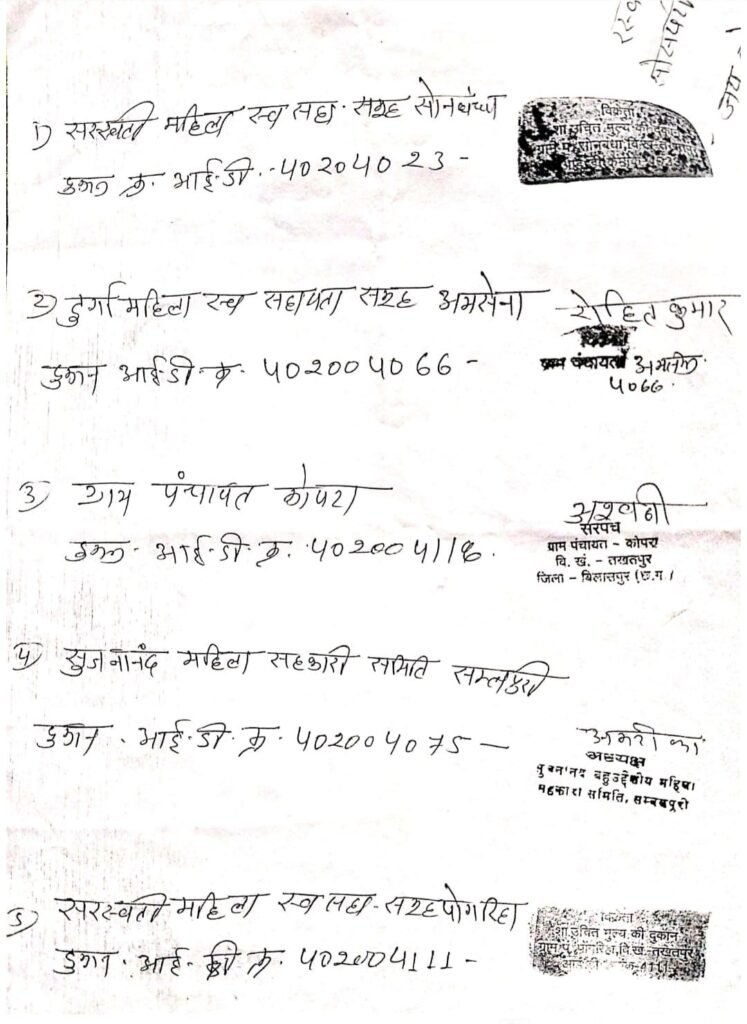 1) सरस्वती महिला स्व सहा. समूह सोनबंधा
विक्रेता
शा. उचित मूल्य की दुकान
दुकान क्र. आई.डी. ..40204023 -
2) दुर्गा महिला स्व सहायता समूह अमसेना
रोहित कुमार
ग्राम पंचायत
4066.
दुकान आई.डी. क्र. 402004066 -
3) ग्राम पंचायत कोपरा
दुकान. आई.डी. क्र. 402004118.
अश्वनी
सरपंच
ग्राम पंचायत - कोपरा
वि. खं. - तखतपुर
जिला - बिलासपुर (छ.ग.)
4) महिला सहकारी समिति
दुकान. आई.डी. क्र. 402004075 -
अध्यक्ष
बहुउद्देशीय महिला
सहकारी समिति, सम्बलपुरी
5) सरस्वती महिला स्व सहा. समूह पोंगरिहा
दुकान. आई.डी. क्र. 402004111 -
विक्रेता
शा. उचित मूल्य की दुकान
वि.खं. तखतपुर